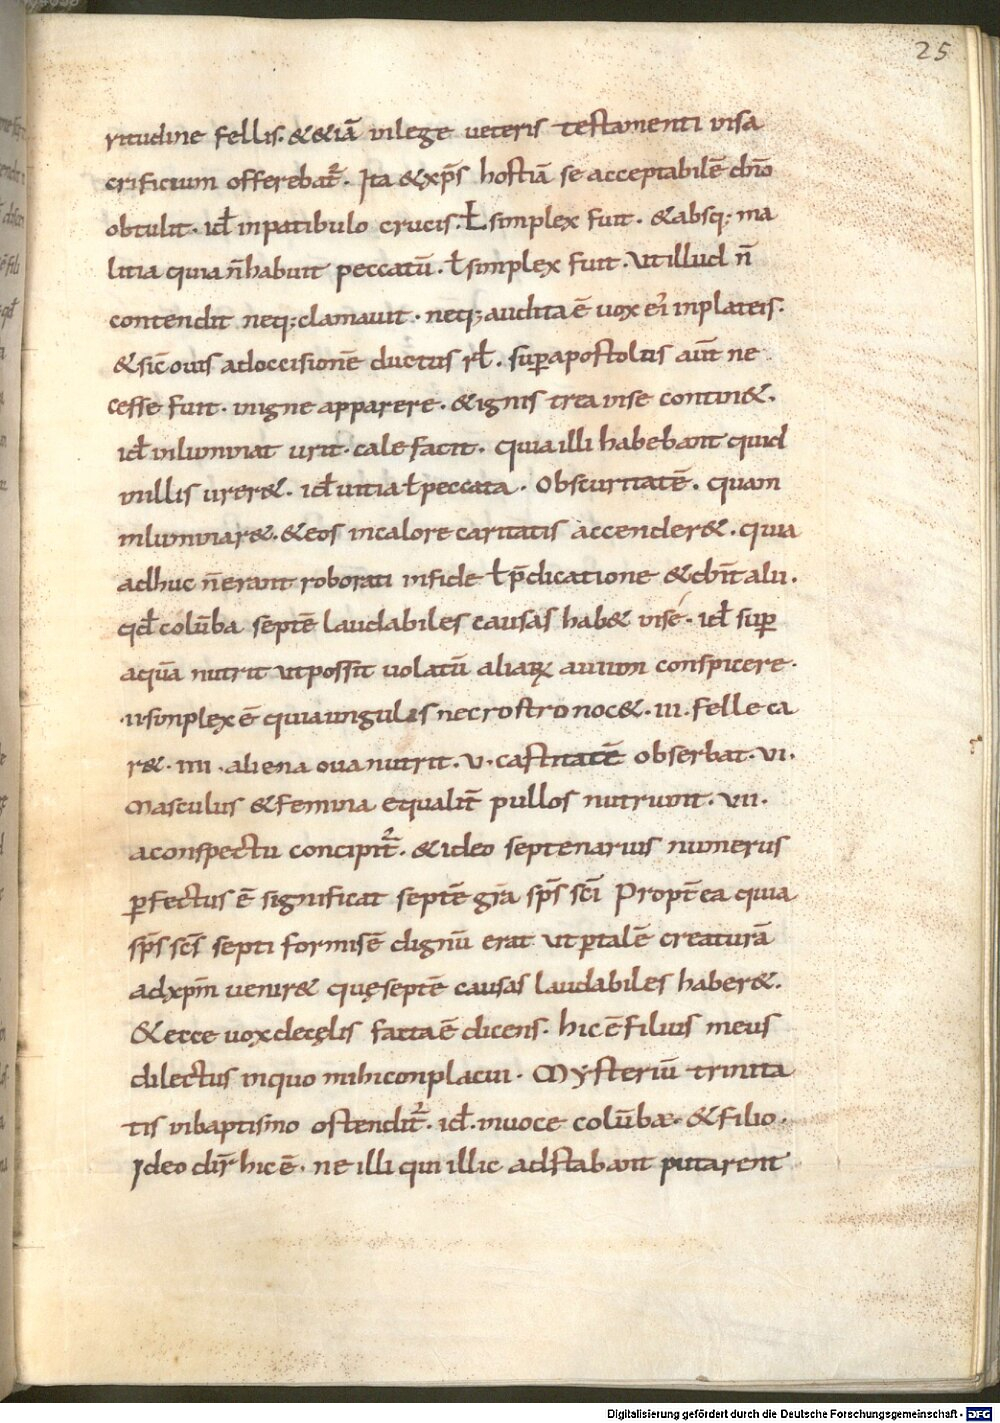 25
ritudine fellis. & &iā inlege ueteris testamenti insa
crificium offerebat̃. Ita & xp̄s hostiā se acceptabilē d̄no
obtulit. id̄ inpatibulo crucis. ł simplex fuit. & absq; ma
litia quia n̄ habuit peccatū. ł simplex fuit. ut illud n̄
contendit neq; clamauit. neq; audita ē uox ei' inplateis.
& sic̄ ouis adoccisionē ductus rł. sup̱ apostolus aut̄ ne
cesse fuit. inigne apparere. & ignis trea inse contin&.
id̄ inluminat urit. calefacit. quia illi habebant quid
inillis urer&. id̄ uitia ł peccata. Obscuritatē. quam
inluminar&. & eos incalore caritatis accender&. quia
adhuc n̄ erant roborati infide ł p̄dicatione &
qd̄ colūba septē laudabiles causas hab& inse. id̄ sup̱
aquā nutrit ut possit uolatū aliaꝝ auium conspicere.
.ii. simplex ē quia ungulis nec rostro noc&. iii. felle ca
r&. iiii. aliena oua nutrit. v. castitatē obserbat. vi.
Masculus & femina equalit̄ pullos nutriunt. vii.
aconspectu concipit̃. & ideo septenarius numerus
ꝑfectus ē significat septē gr̄a sp̄s sc̄i Propt̄ea quia
sp̄s sc̄s septiformis ē dignū erat ut ꝑ talē creaturā
adxp̄m uenir& quę septē causas laudabiles haber&.
& ecce uox decęlis facta ē dicens. hic ē filius meus
dilectus inquo mihi conplacui. Mysteriū trinita
tis inbaptismo ostendit̃. id̄. inuoce colūbæ. & filio.
Ideo dir̄ hic ē. ne illi qui illic adstabant putarent
Digitalisierung gefördert durch die Deutsche Forschungsgemeinschaft - DFG